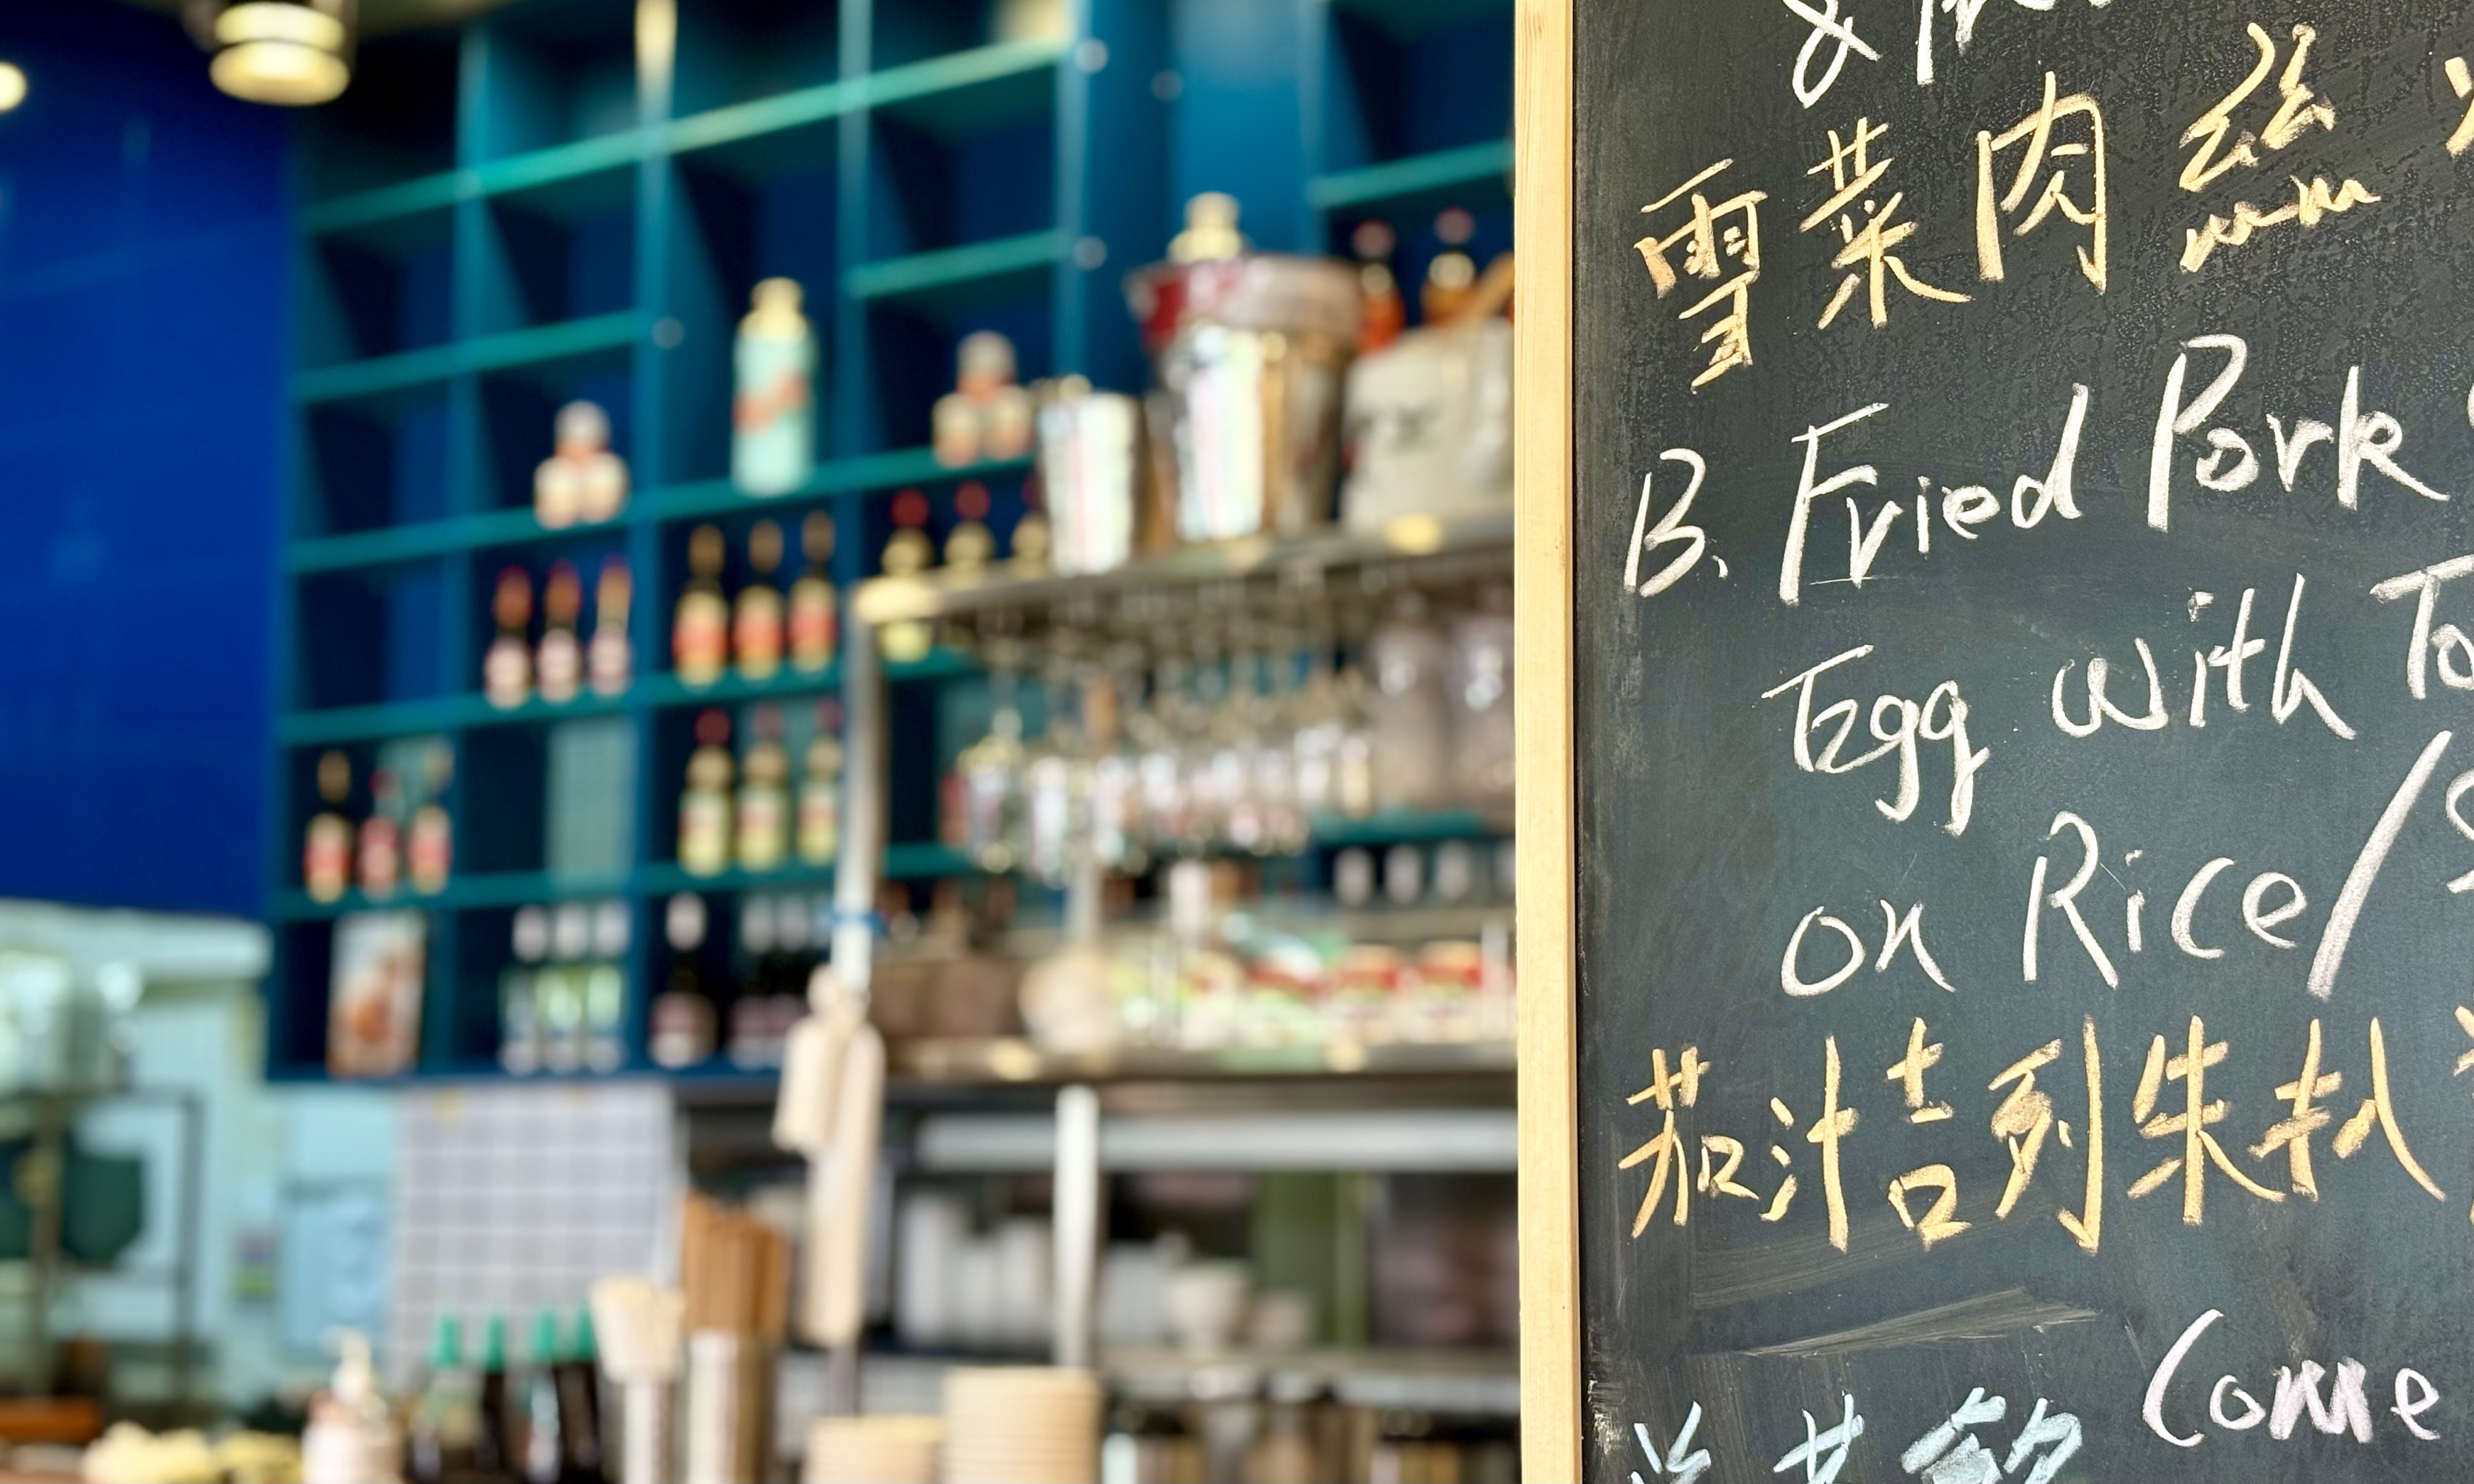 &
雪菜肉絲
B. Fried Pork
Egg with To
on Rice/
茄汁吉列朱扒
Come